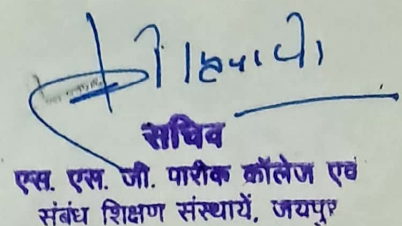 सचिव
एस. एस. जी. पारीक कॉलेज एवं
संबंध शिक्षण संस्थायें, जयपुर